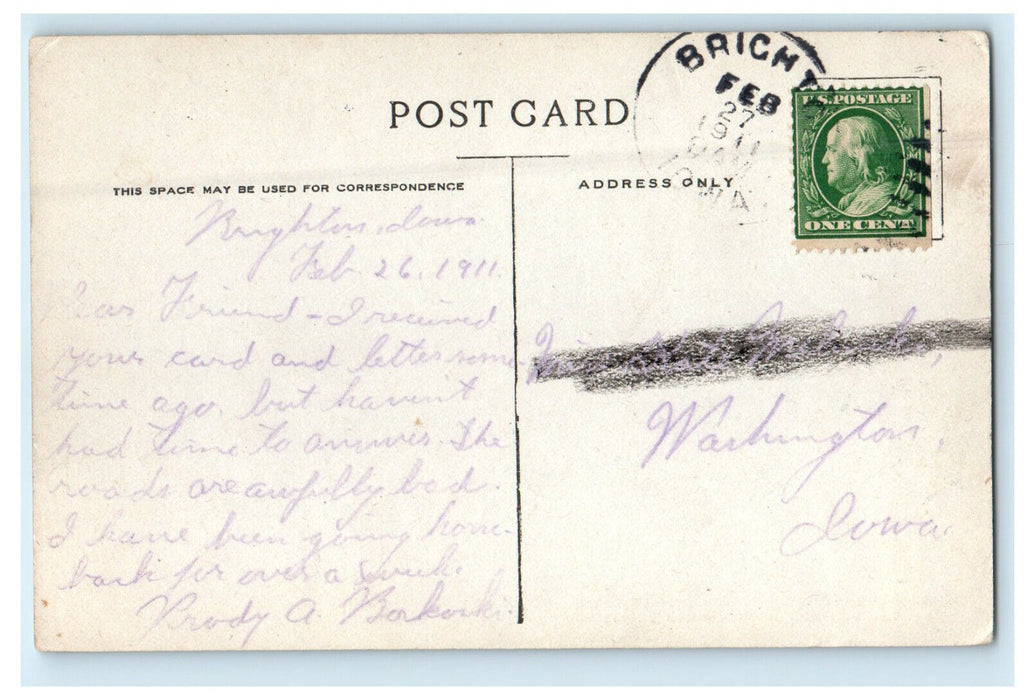 POST CARD
BRIGHT
FEB
27
1911
U.S. POSTAGE
ONE CENT
THIS SPACE MAY BE USED FOR CORRESPONDENCE
ADDRESS ONLY
Brighton, Iowa
Feb. 26, 1911.
Dear Friend - I received
your card and letter some
time ago, but haven't
had time to answer. The
roads are awfully bad.
I have been going horse
back for over a week.
A.
Washington,
Iowa